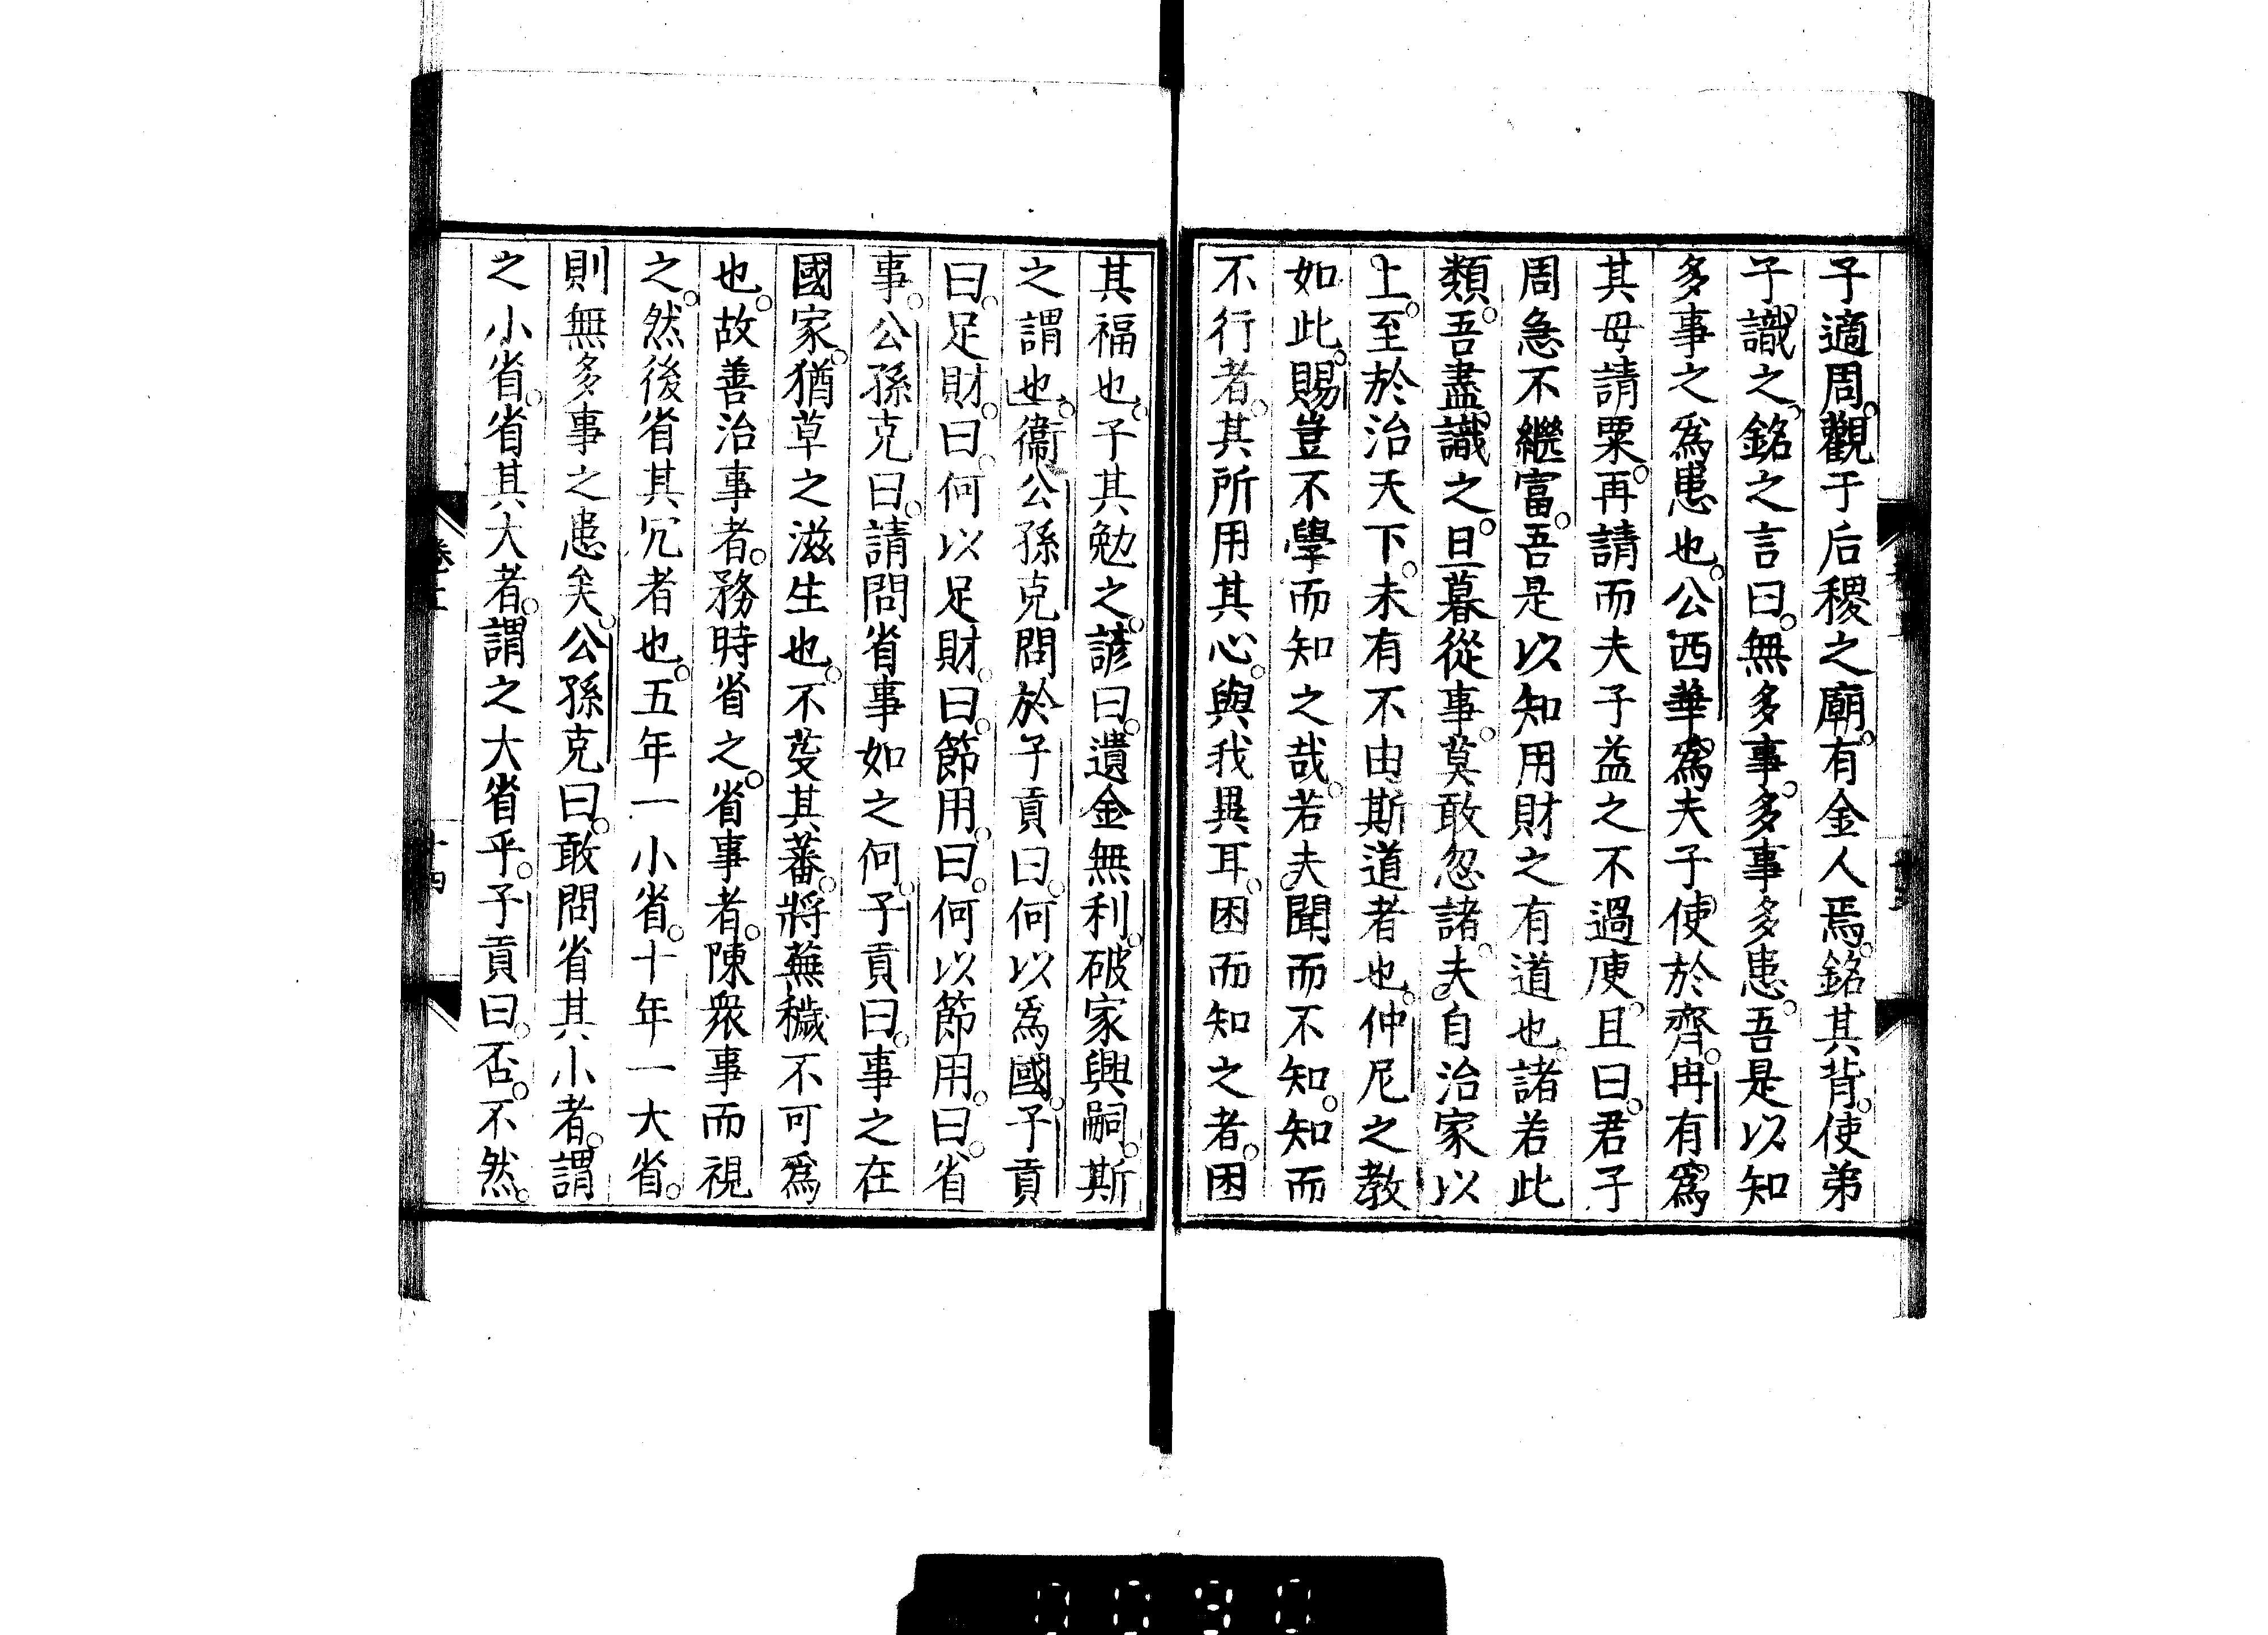 子適周。觀于后稷之廟。有金人焉。銘其背。使弟
子識之。銘之言曰。無多事。多事多患。吾是以知
多事之爲患也。公西華爲夫子使於齊。冉有爲
其母請粟。再請而夫子益之不過庾。且曰。君子
周急不繼富。吾是以知用財之有道也。諸若此
類。吾盡識之。旦暮從事。莫敢忽諸。夫自治家以
上。至於治天下。未有不由斯道者也。仲尼之教
如此。賜豈不學而知之哉。若夫聞而不知。知而
不行者。其所用其心。與我異耳。困而知之者。困
其福也。子其勉之。諺曰。遺金無利。破家興嗣。斯
之謂也。衞公孫克問於子貢曰。何以爲國。子貢
曰。足財。曰。何以足財。曰。節用。曰。何以節用。曰。省
事。公孫克曰。請問省事如之何。子貢曰。事之在
國家。猶草之滋生也。不芟其蕃。將蕪穢不可爲
也。故善治事者。務時省之。省事者。陳衆事而視
之。然後省其冗者也。五年一小省。十年一大省。
則無多事之患矣。公孫克曰。敢問省其小者。謂
之小省。省其大者。謂之大省乎。子貢曰。否。不然。